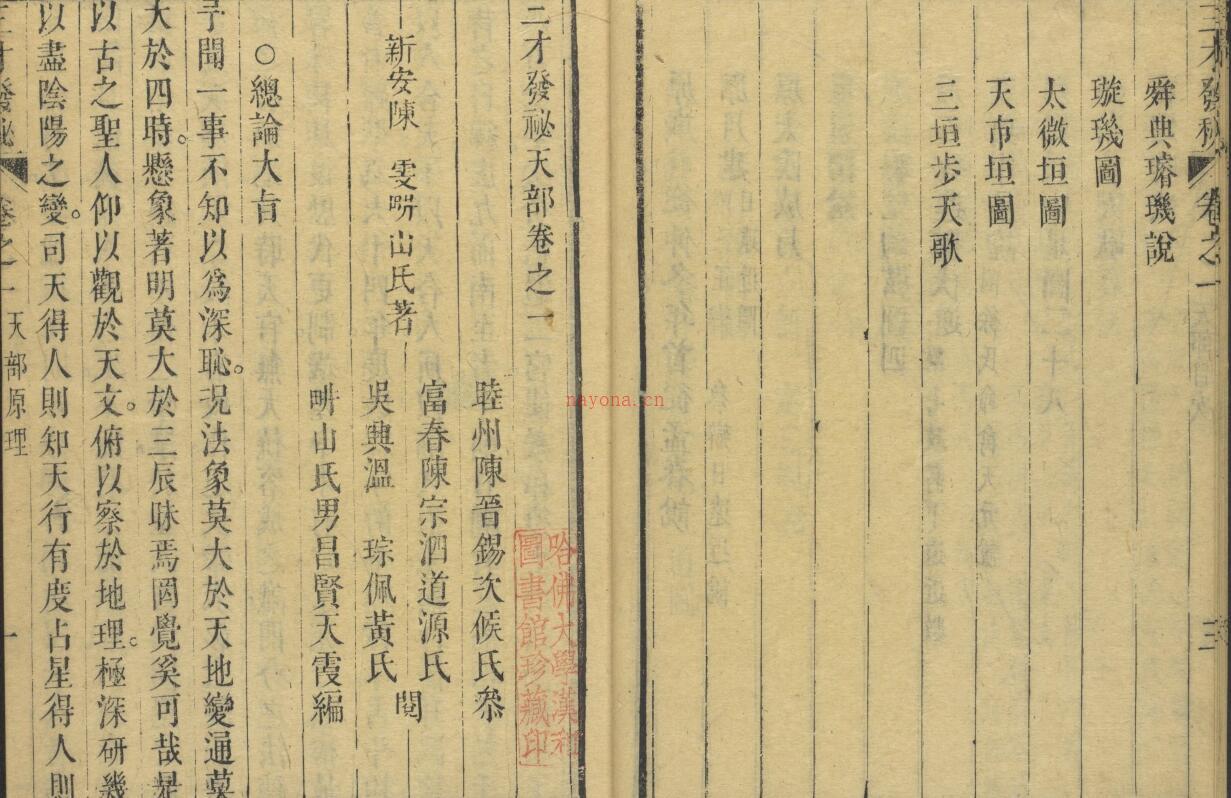 三才發秘 卷之一 三
舜典璿璣說
璇璣圖
太微垣圖
天市垣圖
三垣步天歌
三才發祕天部卷之一
哈佛大學漢和
圖書館珍藏印
睦州陳晉錫次候氏叅
新安陳 雯畊山氏著
富春陳宗泗道源氏
吳興溫 琮佩黃氏
閱
畊山氏男昌賢天霞編
○總論大旨
予聞一事不知以爲深恥。況法象莫大於天地變通莫
大於四時。懸象著明莫大於三辰昧焉罔覺奚可哉是
以古之聖人仰以觀於天文。俯以察於地理。極深研幾
以盡陰陽之變。司天得人則知天行有度占星得人則
三才發秘 卷之一 天部原理 一
nayona.cn